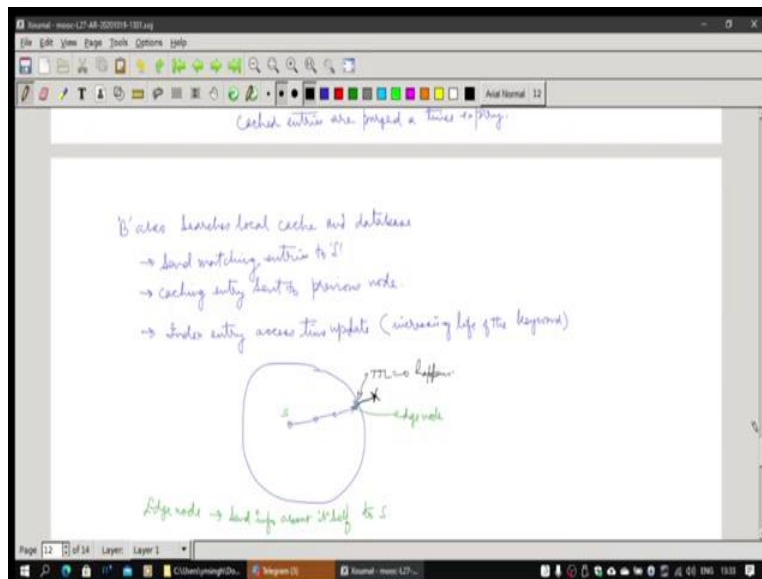 Xournal - mooc-L27-AR-20201019-1301.xoj
File Edit View Page Tools Options Help
Arial Normal 12
Cached entries are purged a times expiry.
'B' also searches local cache and database
→ Send matching entries to 'S'
→ caching entry sent to previous node.
→ Index entry access time update (increasing life of the keyword)
TTL=0 happen
S
edge node
Edge node → Send info about itself to S
Page 12 of 14 Layer: Layer 1
C:\Users\ynsingh\Do... Telegram (3) Xournal - mooc-L27-... ENG 13:33